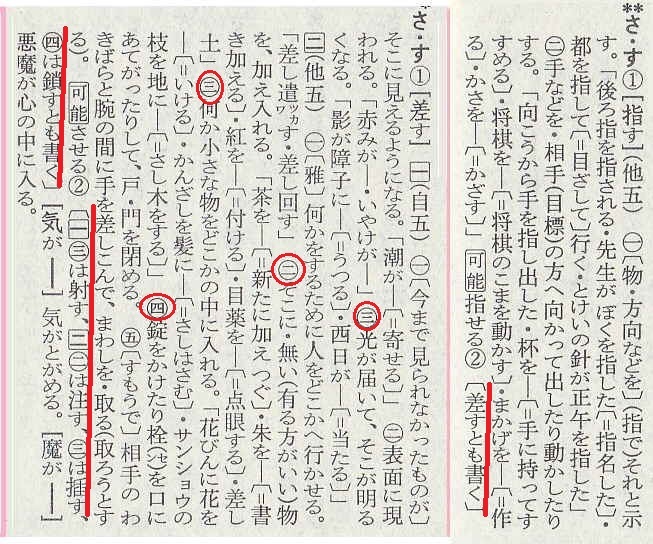 **さ・す①[指す](他五) ㊀〔物・方向などを〕(指で)それと示
す。「後ろ指を指される・先生がぼくを指した〔=指名した〕・
都を指して〔=目ざして〕行く・とけいの針が正午を指した」
㊁手などを・相手(目標)の方へ向かって出したり動かしたり
する。「向こうから手を指し出した・杯を―〔=手に持ってす
すめる〕・将棋を―〔=将棋のこまを動かす〕・まかげを―〔=作
る〕・かさを―〔=かざす〕」 可能指せる② 〔差すとも書く〕
**さ・す①[差す] 一(自五) ㊀〔今まで見られなかったものが〕
そこに見えるようになる。「潮が―〔=寄せる〕」 ㊁表面に現
われる。「赤みが―・いやけが―」 ㊂光が届いて、そこが明る
くなる。「影が障子に―〔=うつる〕・西日が―〔=当たる〕」
二(他五) ㊀〔雅〕何かをするために人をどこかへ行かせる。
「差し遣ワッカす・差し回す」 ㊁そこに・無い(有る方がいい)物
を、加え入れる。「茶を―〔=新たに加えつぐ〕・朱を―〔=書
き加える〕・紅を―〔=付ける〕・目薬を―〔=点眼する〕・差し
土」 ㊂何か小さな物をどこかの中に入れる。「花びんに花を
―〔=いける〕・かんざしを髪に―〔=さしはさむ〕・サンショウの
枝を地に―〔=さし木をする〕」 ㊃錠をかけたり栓(セ)を口に
あてがったりして、戸・門を閉める。 ㊄〔すもうで〕相手のわ
きばらと腕の間に手を差しこんで、まわしを・取る(取ろうとす
る)。 可能させる② 〔一㊂は射す、二㊁は注す、㊂は挿す、
㊃は鎖すとも書く〕 [気が―] 気がとがめる。 [魔が―]
悪魔が心の中に入る。